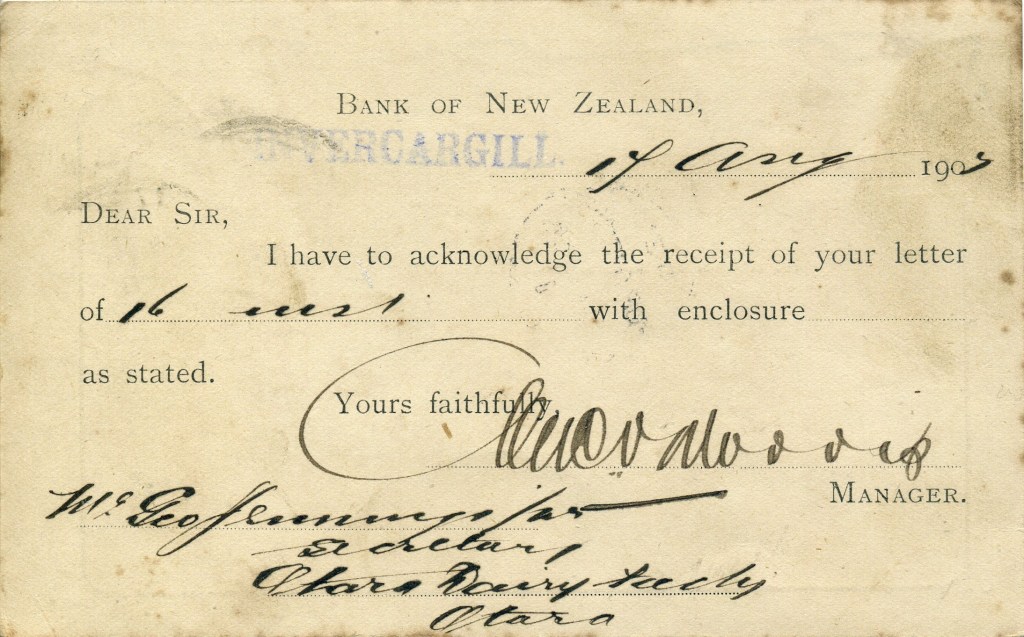 BANK OF NEW ZEALAND,
INVERCARGILL.
17 Aug 1903
DEAR SIR,
I have to acknowledge the receipt of your letter
of 16 inst with enclosure
as stated.
Yours faithfully,
MANAGER.
Mr Geo Jennings
Secretary
Otara Dairy Facty
Otara